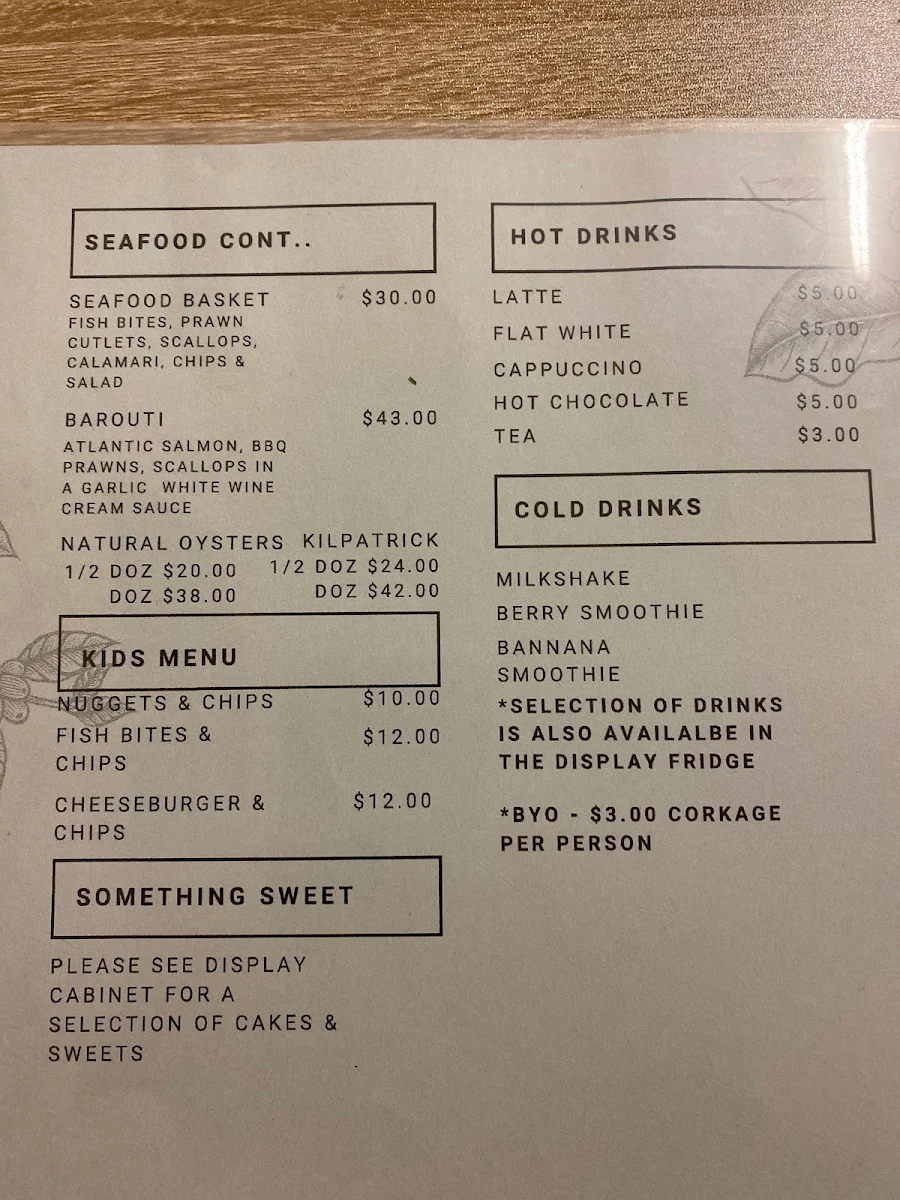 SEAFOOD CONT..
SEAFOOD BASKET $30.00
FISH BITES, PRAWN
CUTLETS, SCALLOPS,
CALAMARI, CHIPS &
SALAD
BAROUTI $43.00
ATLANTIC SALMON, BBQ
PRAWNS, SCALLOPS IN
A GARLIC WHITE WINE
CREAM SAUCE
NATURAL OYSTERS KILPATRICK
1/2 DOZ $20.00 1/2 DOZ $24.00
DOZ $38.00 DOZ $42.00
KIDS MENU
NUGGETS & CHIPS $10.00
FISH BITES & $12.00
CHIPS
CHEESEBURGER & $12.00
CHIPS
SOMETHING SWEET
PLEASE SEE DISPLAY
CABINET FOR A
SELECTION OF CAKES &
SWEETS
HOT DRINKS
LATTE $5.00
FLAT WHITE $5.00
CAPPUCCINO $5.00
HOT CHOCOLATE $5.00
TEA $3.00
COLD DRINKS
MILKSHAKE
BERRY SMOOTHIE
BANNANA
SMOOTHIE
*SELECTION OF DRINKS
IS ALSO AVAILALBE IN
THE DISPLAY FRIDGE
*BYO - $3.00 CORKAGE
PER PERSON